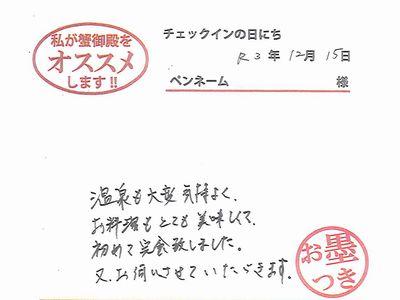 私が蟹御殿を
オススメ
します!!
チェックインの日にち
R3年12月15日
ペンネーム 様
温泉も大変気持よく、
お料理もとても美味しくて、
初めて完食致しました。
又、お伺いさせていただきます。
お墨
つき